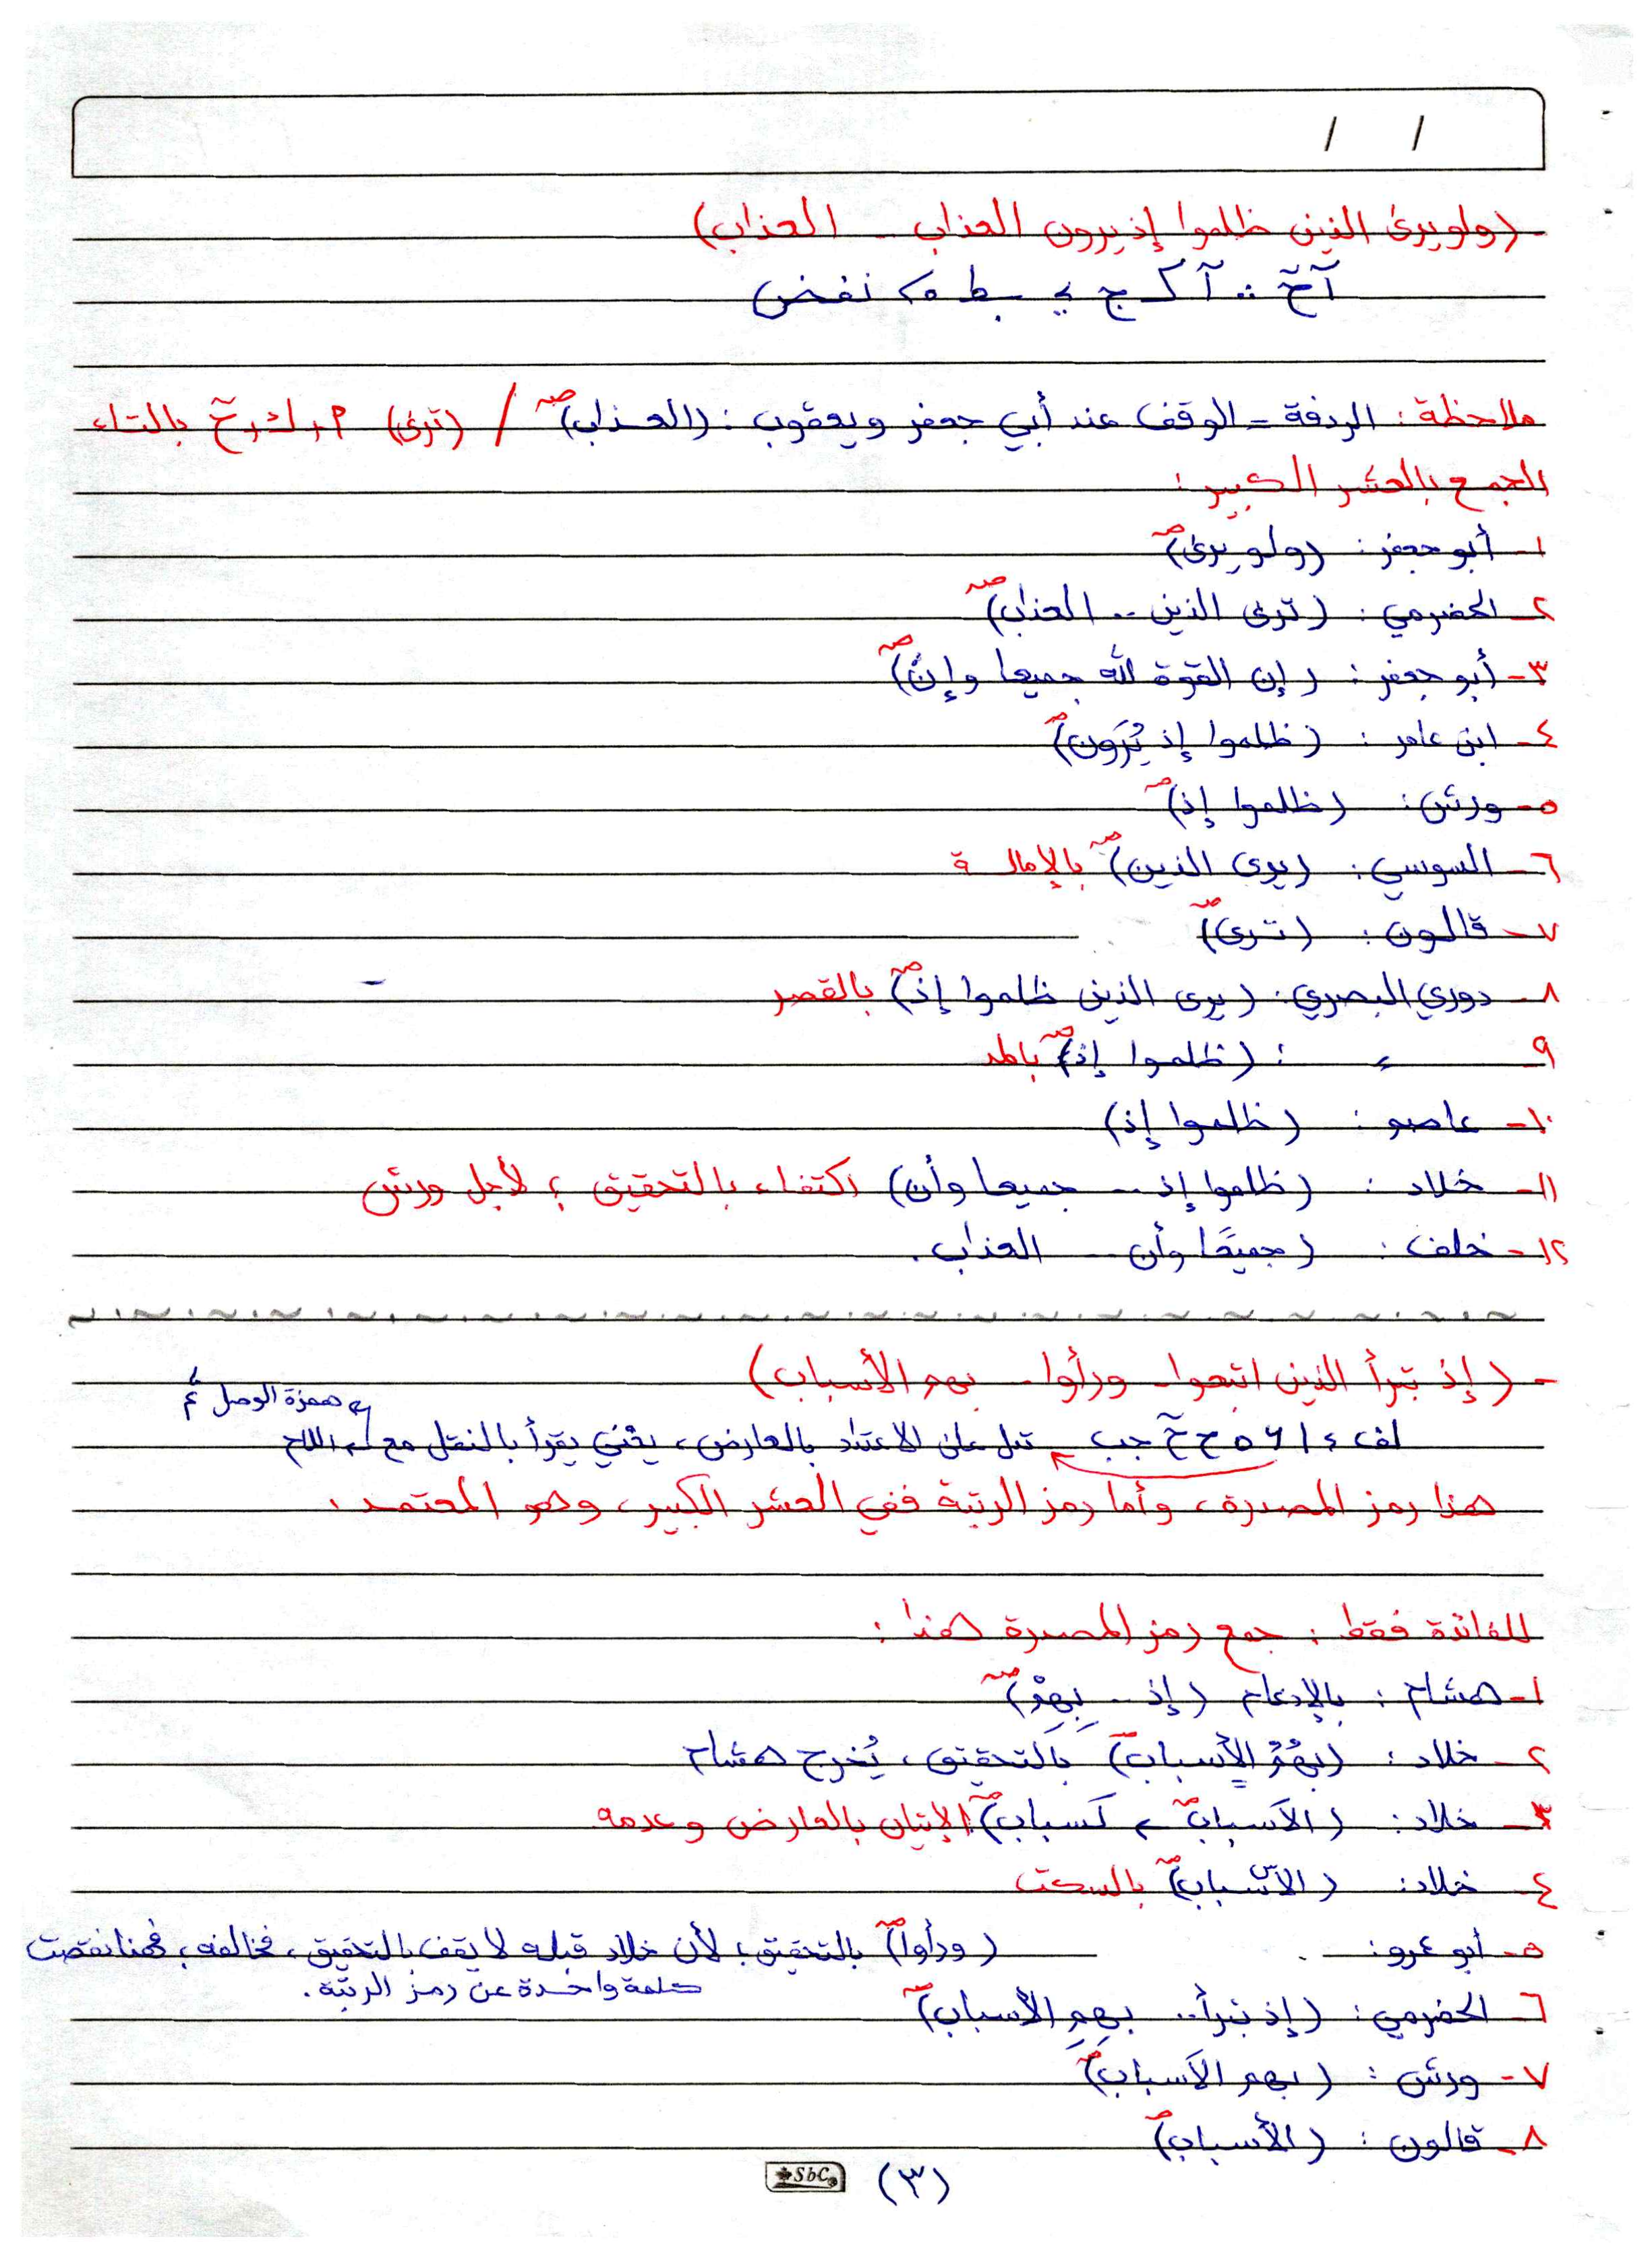 / /
- (ولو يرى الذين ظلموا إذ يرون العذاب - العذاب)
ملاحظة: الردفة = الوقف عند أبي جعفر ويعقوب: (العذاب) صـ / (ترى) بالتاء
الجمع بالعشر الكبير:
١- أبو جعفر: (ولو يرى) صـ
٢- الحضرمي: (ترى الذين .. العذاب) صـ
٣- أبو جعفر: (إن القوة لله جميعا وإنَّ) صـ
٤- ابن عامر: (ظلموا إذ يُرَون) صـ
٥- ورش: (ظلموا إذ) صـ
٦- السوسي: (يرى الذين) صـ بالإمالة
٧- قالون: (ترى) صـ
٨- دوري البصري: (يرى الذين ظلموا إذ) صـ بالقصر
٩- ء : (ظلموا إذ) صـ بالمد
١٠- عاصم: (ظلموا إذ)
١١- خلاد: (ظلموا إذ .. جميعا وأن) اكتفاء بالتحقيق؛ لأجل ورش
١٢- خلف: (جميعًا وأن .. العذاب.
- (إذ تبرأ الذين اتبعوا - ورأوا - بهم الأسباب)
همزة الوصل
جب تدل على الاعتداد بالعارض، يعني يقرأ بالنقل مع اللام
هذا رمز المصدرة، وأما رمز الرتبة ففي العشر الكبير، وهو المعتمد.
للفائدة فقط: جمع رمز المصدرة هنا:
١- هشام: بالإدغام (إذ .. بِهِمْ) صـ
٢- خلاد: (بهُمُ الأسباب) بالتحقيق، يُخرج هشام
٣- خلاد: (الَاسباب صـ لَسباب) صـ الإتيان بالعارض وعدمه
٤- خلاد: (الأسباب) صـ بالسكت
٥- أبو عمرو: (ورأوا) صـ بالتحقيق؛ لأن خلاد قبله لا يقف بالتحقيق، فخالفه، فهنا نقصت
كلمة واحدة عن رمز الرتبة.
٦- الحضرمي: (إذ تبرأ .. بهِمِ الأسباب) صـ
٧- ورش: (بهم الَاسباب) صـ
٨- قالون: (الأسباب) صـ
SbC (٣)